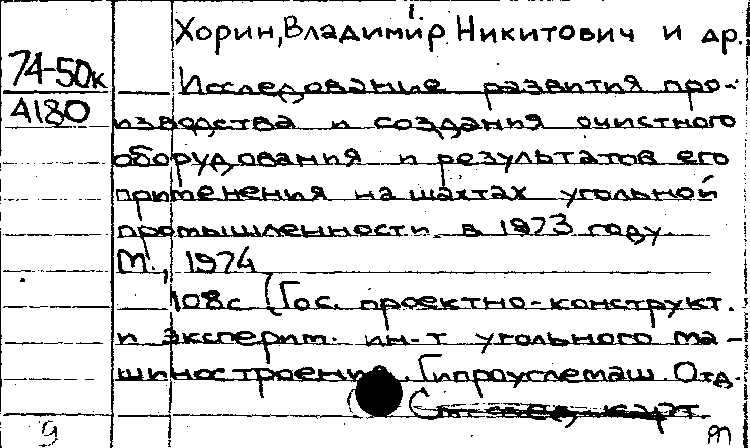 Хорин, Владимир Никитович и др.
74-50к
Исследование развития про-
4180
изводства и создания очистного
оборудования и результатов его
применения на шахтах угольной
промышленности в 1973 году.
М., 1974
108с (Гос. проектно-конструкт.
и эксперим. ин-т угольного ма-
шиностроения. Гипроуглемаш Отд.
карт.
9